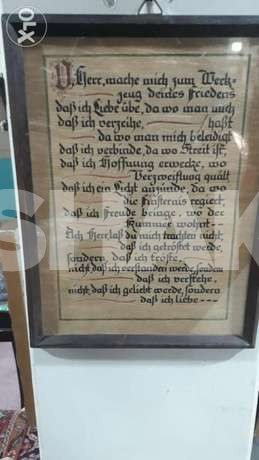 OLX
O, Herr, mache mich zum Werk-
zeug deines Friedens
daß ich Liebe übe, da wo man mich
haßt
daß ich verzeihe,
da wo man mich beleidigt
daß ich verbinde, da wo Streit ist,
daß ich Hoffnung erwecke, wo
Verzweiflung quält
daß ich ein Licht anzünde, da wo
die Finsternis regiert,
daß ich Freude bringe, wo der
Kummer wohnt
Ach Herr, laß du mich trachten nicht,
daß ich getröstet werde,
sondern, daß ich tröste,
nicht, daß ich verstanden werde, sondern
daß ich verstehe,
nicht, daß ich geliebt werde, sondern
daß ich liebe ---